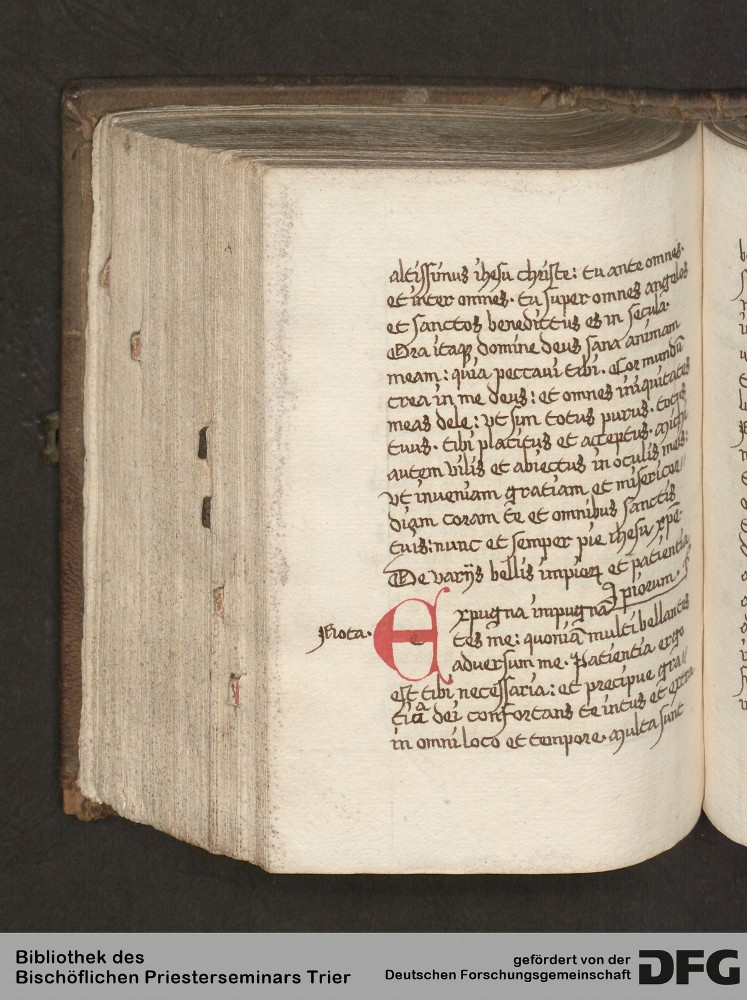 altissimus ihesu christe: tu ante omnes.
et inter omnes. tu super omnes angelos
et sanctos benedictus es in secula.
Ora itaqꝫ domine deus sana animam
meam: quia peccaui tibi. Cor mundū
crea in me deus: et omnes iniquitates
meas dele: vt sim totus purus. totus
tuus. tibi placitus et acceptus. Michi
autem vilis et abiectus in oculis meis:
vt inueniam gratiam et misericor
diam coram te et omnibus sanctis
tuis: nunc et semper pie ihesu xp̄e.
De varijs bellis impioꝝ et patientia
piorum.
Nota. Expugna impugnā
tes me: quoniā multi bellantes
aduersum me. Patientia ergo
est tibi necessaria: et precipue gra
tia dei confortans te intus et extra
in omni loco et tempore. Multa sunt
Bibliothek des
Bischöflichen Priesterseminars Trier
gefördert von der
Deutschen Forschungsgemeinschaft DFG